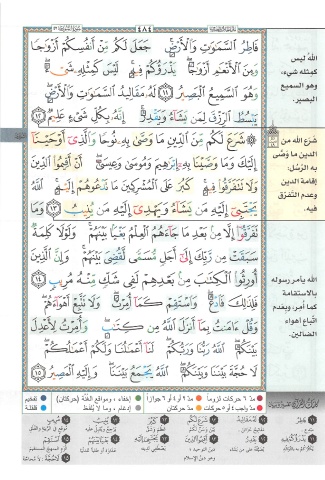 ٤٨٤
فَاطِرُ السَّمَٰوَٰتِ وَالْأَرْضِ ۚ جَعَلَ لَكُم مِّنْ أَنفُسِكُمْ أَزْوَٰجًا
وَمِنَ الْأَنْعَٰمِ أَزْوَٰجًا ۖ يَذْرَؤُكُمْ فِيهِ ۚ لَيْسَ كَمِثْلِهِۦ شَىْءٌ ۖ
وَهُوَ السَّمِيعُ الْبَصِيرُ ١١ لَهُۥ مَقَالِيدُ السَّمَٰوَٰتِ وَالْأَرْضِ ۖ
يَبْسُطُ الرِّزْقَ لِمَن يَشَآءُ وَيَقْدِرُ ۚ إِنَّهُۥ بِكُلِّ شَىْءٍ عَلِيمٌ ١٢
شَرَعَ لَكُم مِّنَ الدِّينِ مَا وَصَّىٰ بِهِۦ نُوحًا وَالَّذِىٓ أَوْحَيْنَآ
إِلَيْكَ وَمَا وَصَّيْنَا بِهِۦٓ إِبْرَٰهِيمَ وَمُوسَىٰ وَعِيسَىٰٓ ۖ أَنْ أَقِيمُوا۟ الدِّينَ
وَلَا تَتَفَرَّقُوا۟ فِيهِ ۚ كَبُرَ عَلَى الْمُشْرِكِينَ مَا تَدْعُوهُمْ إِلَيْهِ ۚ اللَّهُ
يَجْتَبِىٓ إِلَيْهِ مَن يَشَآءُ وَيَهْدِىٓ إِلَيْهِ مَن يُنِيبُ ١٣ وَمَا
تَفَرَّقُوٓا۟ إِلَّا مِنۢ بَعْدِ مَا جَآءَهُمُ الْعِلْمُ بَغْيًۢا بَيْنَهُمْ ۚ وَلَوْلَا كَلِمَةٌ
سَبَقَتْ مِن رَّبِّكَ إِلَىٰٓ أَجَلٍ مُّسَمًّى لَّقُضِىَ بَيْنَهُمْ ۚ وَإِنَّ الَّذِينَ
أُورِثُوا۟ الْكِتَٰبَ مِنۢ بَعْدِهِمْ لَفِى شَكٍّ مِّنْهُ مُرِيبٍ ١٤
فَلِذَٰلِكَ فَادْعُ ۖ وَاسْتَقِمْ كَمَآ أُمِرْتَ ۖ وَلَا تَتَّبِعْ أَهْوَآءَهُمْ ۖ
وَقُلْ ءَامَنتُ بِمَآ أَنزَلَ اللَّهُ مِن كِتَٰبٍ ۖ وَأُمِرْتُ لِأَعْدِلَ
بَيْنَكُمُ ۖ اللَّهُ رَبُّنَا وَرَبُّكُمْ ۖ لَنَآ أَعْمَٰلُنَا وَلَكُمْ أَعْمَٰلُكُمْ ۖ
لَا حُجَّةَ بَيْنَنَا وَبَيْنَكُمُ ۖ اللَّهُ يَجْمَعُ بَيْنَنَا ۖ وَإِلَيْهِ الْمَصِيرُ ١٥
الله ليس
كمثله شيء،
وهو السميع
البصير.
شرع الله من
الدين ما وصّى
به الرُّسُل:
إقامة الدين
وعدم التفرّق
فيه.
الله يأمر رسوله
بالاستقامة
كما أُمر، وبعدم
اتّباع أهواء
الضالين.
مدّ ٦ حركات لزوماً
مدّ ٢ أو ٤ أو ٦ جوازاً
إخفاء، ومواقع الغُنَّة (حركتان)
تفخيم
مدّ واجب ٤ أو ٥ حركات
مدّ حركتان
إدغام، وما لا يُلفظ
قلقلة